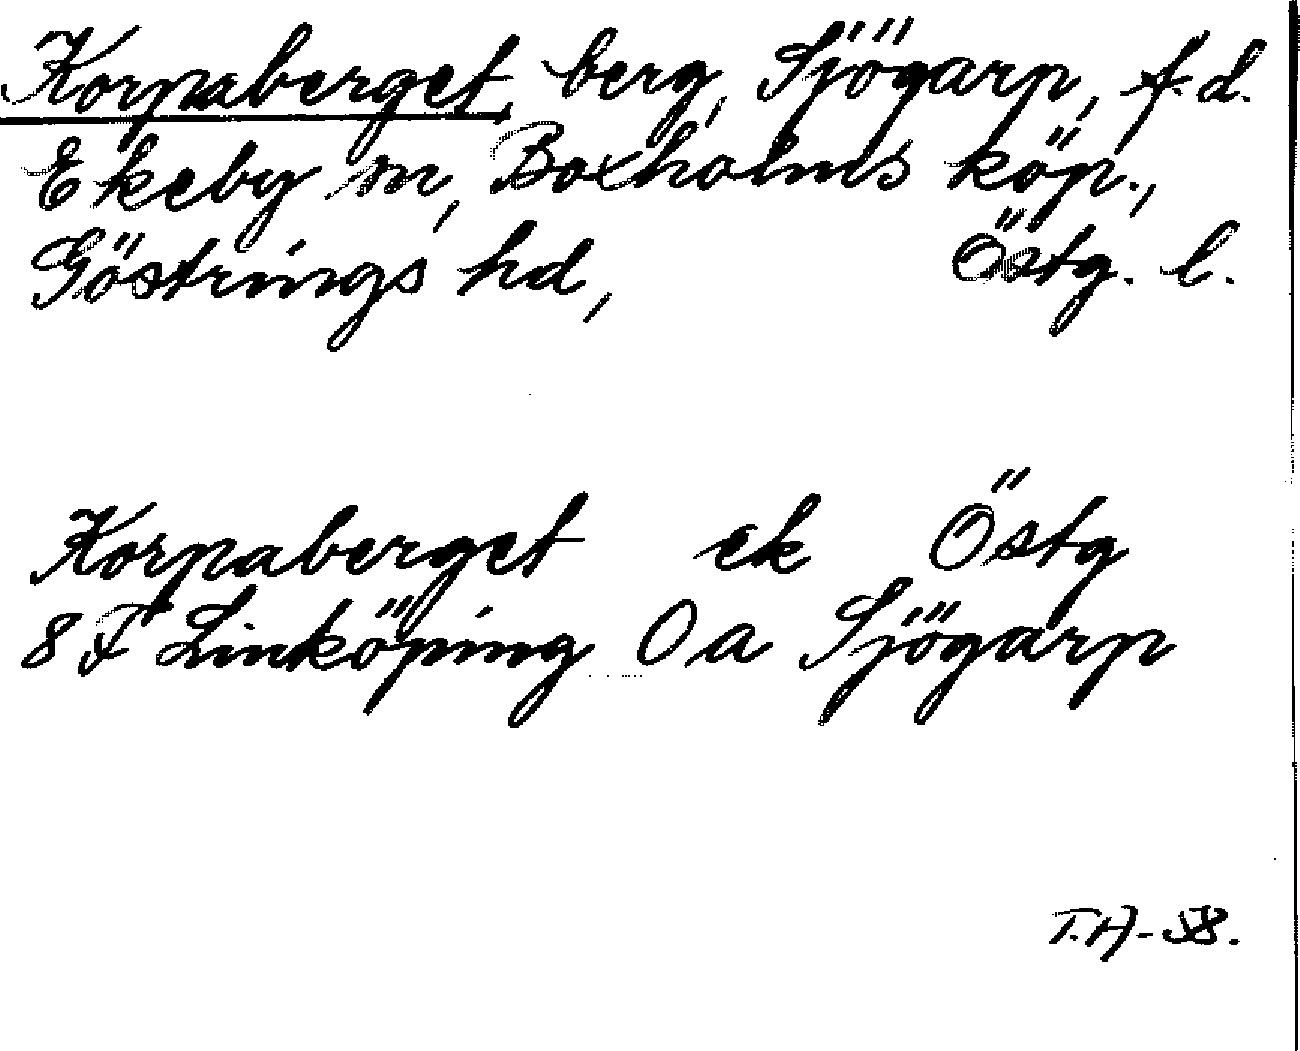 Korpaberget, berg, Sjögarp, f.d.
Ekeby sn, Boxholms köp.,
Göstrings hd, Östg. l.
Korpaberget ek Östg
8 F Linköping 0 a Sjögarp
T.H-58.